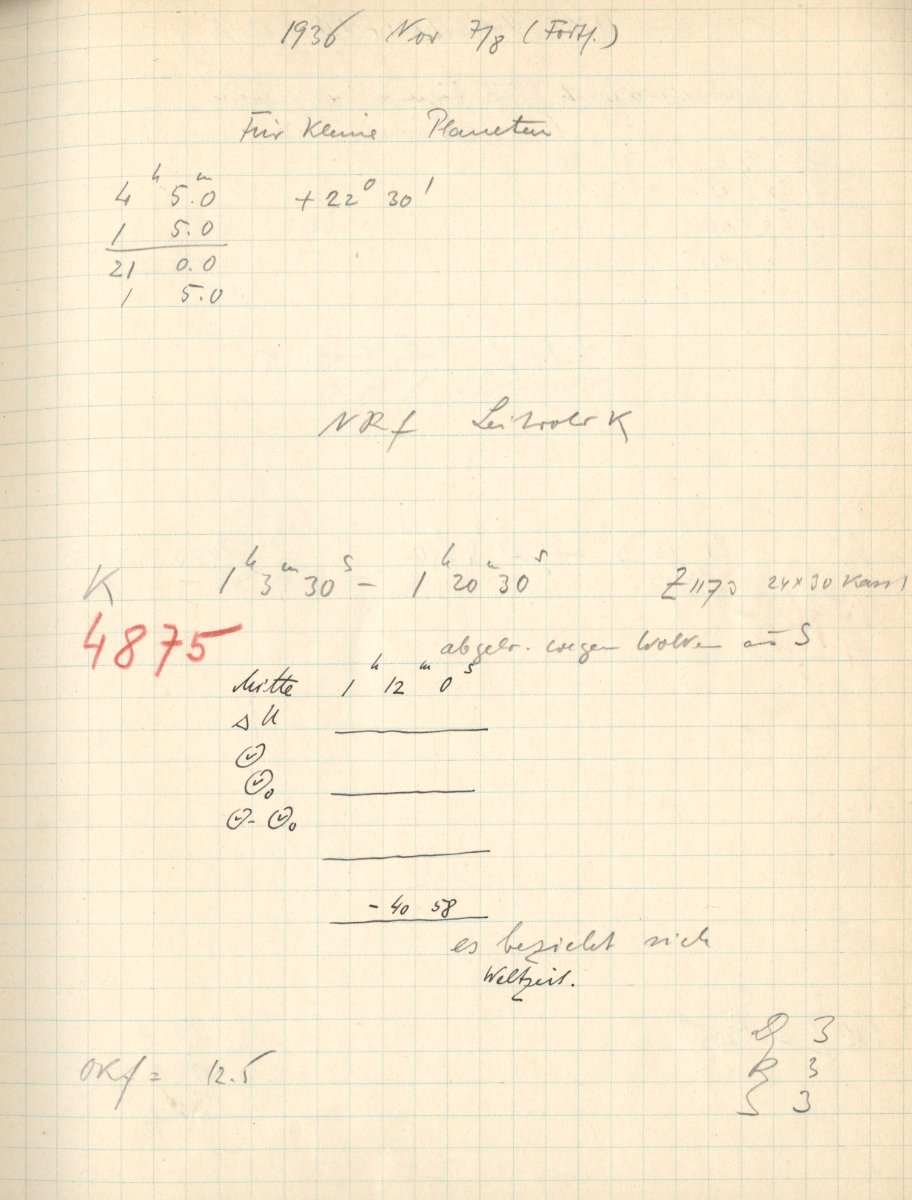 1936 Nov 7/8 (Forts.)
Für Kleine Planeten
4h 5.0m +22° 30'
1 5.0
21 0.0
1 5.0
NRf
K 1h 3m 30s - 1h 20m 30s Z 1173 24×30
4875
abgebr. wegen Wolken aus S
Mitte 1h 12m 0s
Δ U
- 40 58
es bezieht sich
Weltzeit.
OKf = 12.5
D 3
R 3
S 3